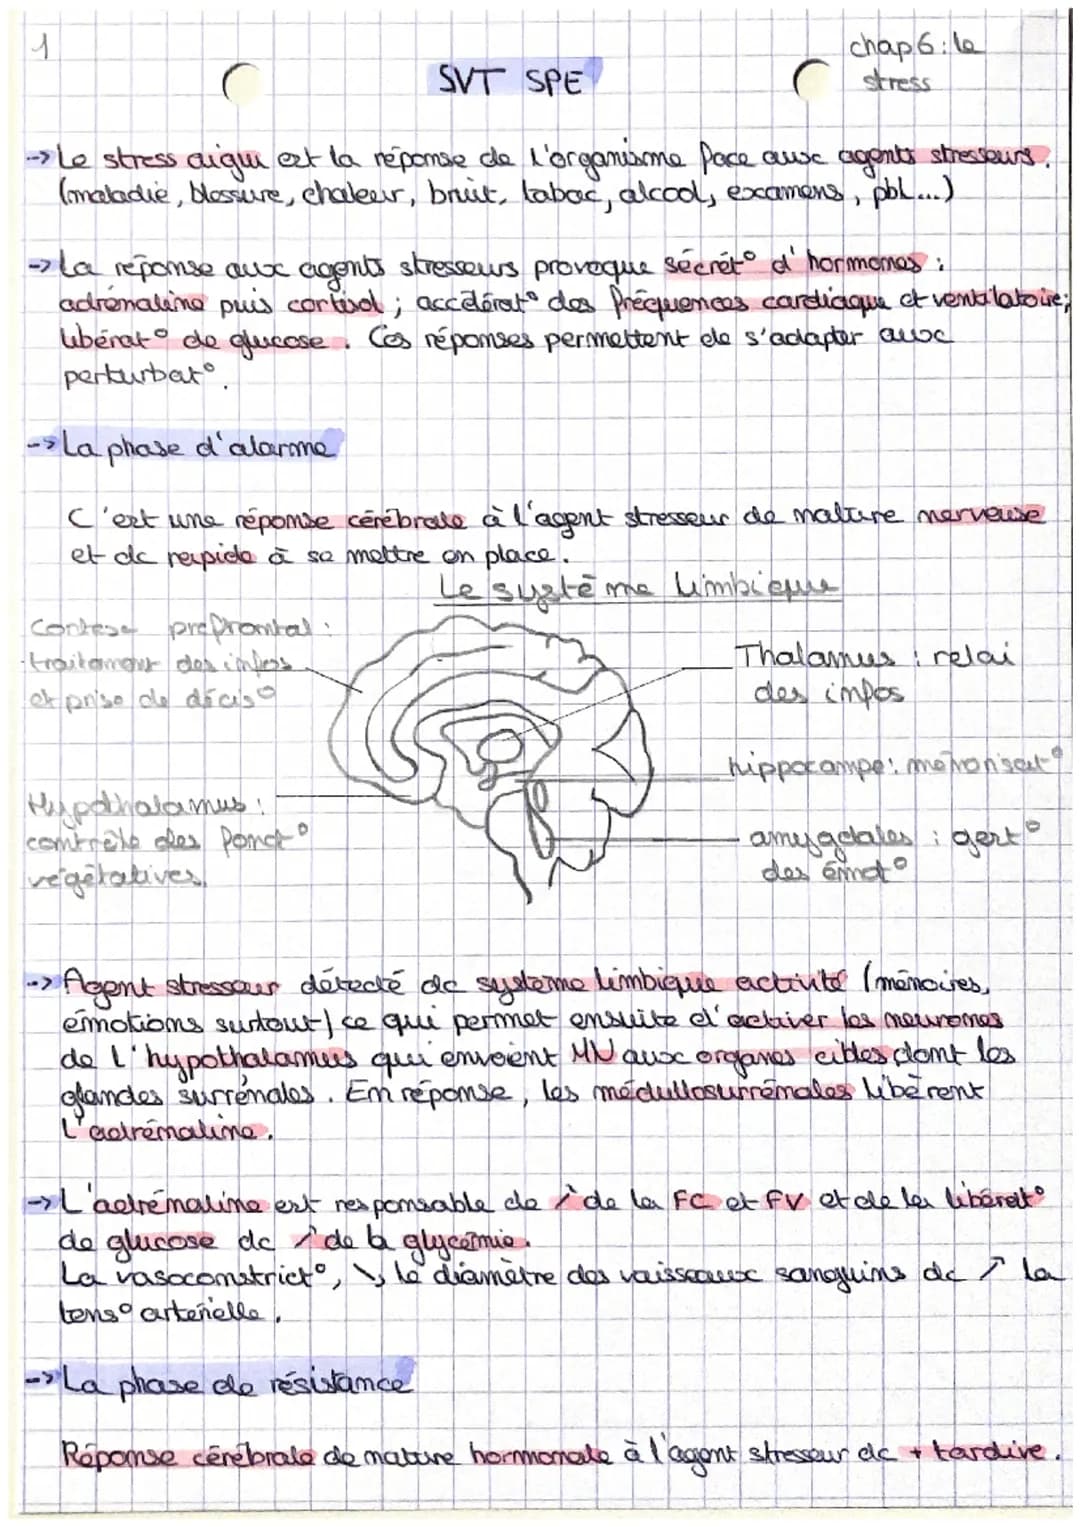 1
chap 6 : le
stress
SVT SPE
-> Le stress aigu est la réponse de l'organisme face aux agents stresseurs.
(maladie, blessure, chaleur, bruit, tabac, alcool, examens, pbl...)
-> La réponse aux agents stresseurs provoque sécrét° d'hormones :
adrénaline puis cortisol ; accélérat° des fréquences cardiaque et ventilatoire ;
libérat° de glucose. Ces réponses permettent de s'adapter aux
perturbat°.
-> La phase d'alarme
C'est une réponse cérébrale à l'agent stresseur de nature nerveuse
et dc rapide à se mettre en place.
Le système limbique
Cortex prefrontal :
traitement des infos
et prise de décis°
Thalamus : relai
des infos
hippocampe : mémorisat°
Hypothalamus :
contrôle des fonct°
végétatives.
amygdales : gest°
des émot°
-> Agent stresseur détecté dc système limbique activité (mémoires,
émotions surtout) ce qui permet ensuite d'activer les neurones
de l'hypothalamus qui envoient MN aux organes cibles dont les
glandes surrénales. En réponse, les médullosurrénales libèrent
l'adrénaline.
-> L'adrénaline est responsable de ↗ de la FC et FV et de la libérat°
de glucose dc ↗ de la glycémie.
La vasoconstrict°, ↘ le diamètre des vaisseaux sanguins dc ↗ la
tens° artérielle.
-> La phase de résistance
Réponse cérébrale de nature hormonale à l'agent stresseur dc + tardive.